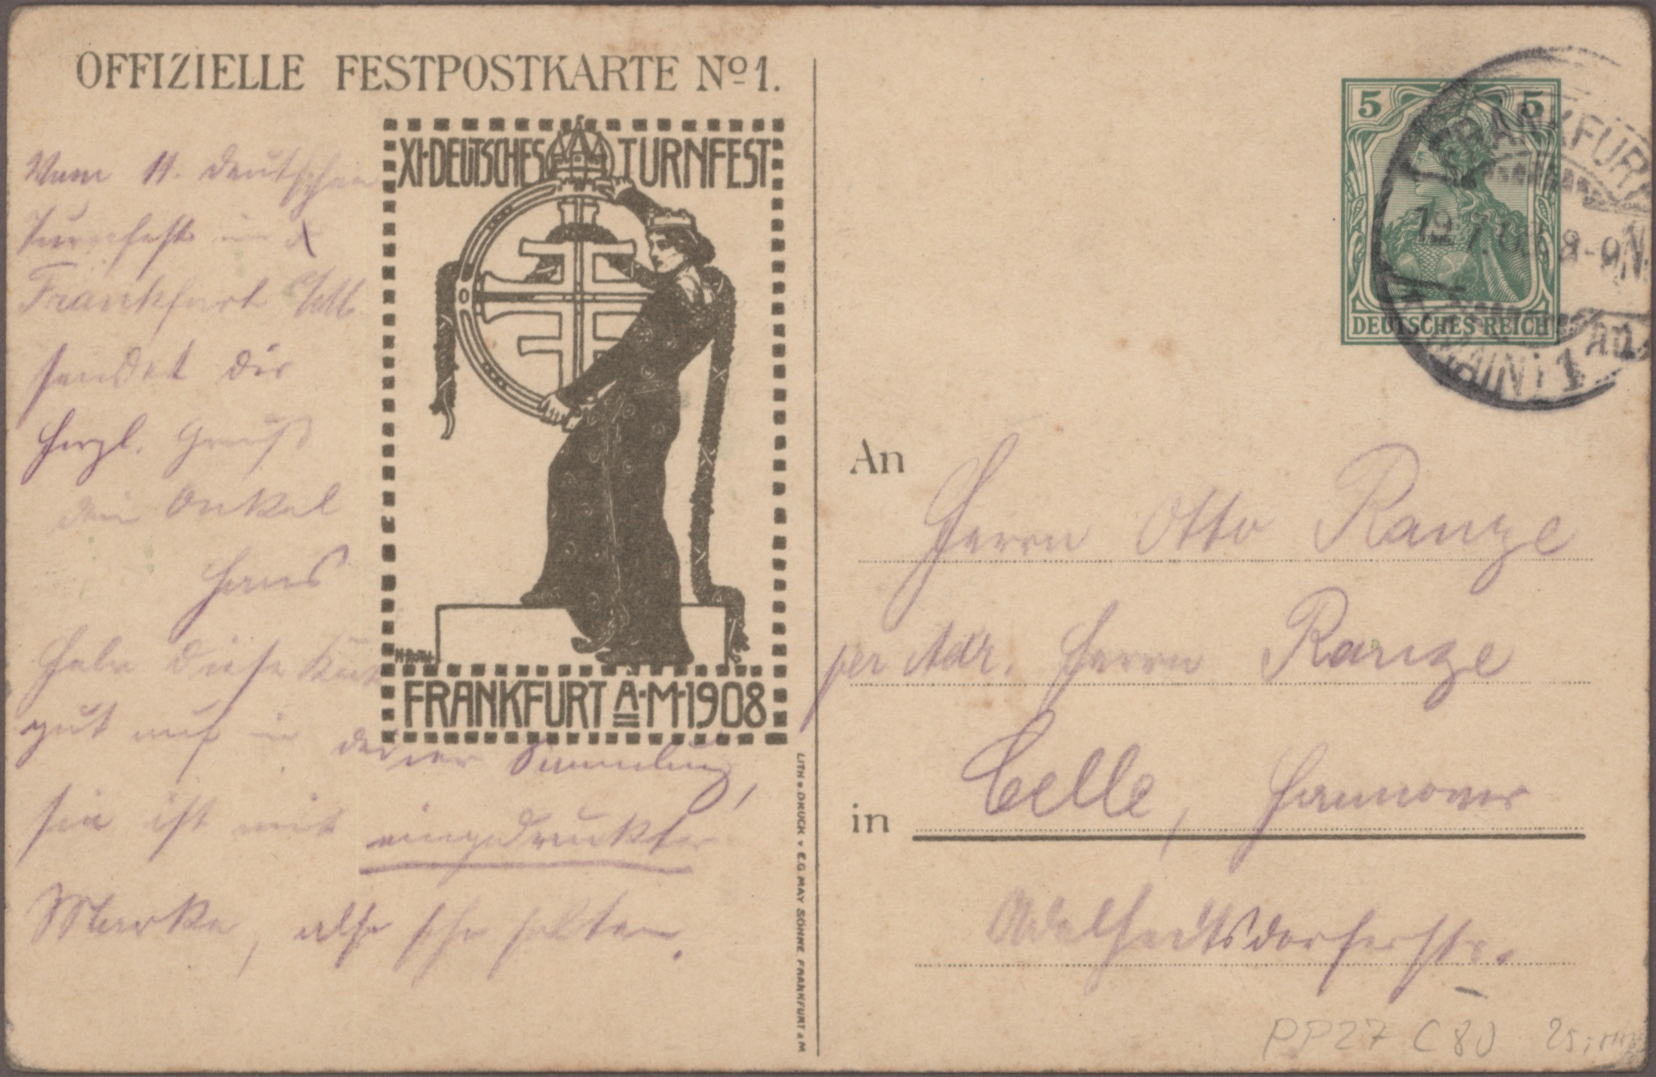 OFFIZIELLE FESTPOSTKARTE Nº 1.
XI·DEUTSCHES TURNFEST
FRANKFURT A·M·1908
Vom 11. deutschen
Turnfest in
Frankfurt a/M.
sendet dir
herzl. Gruß
dein Onkel
Hans
Hebe diese Karte
gut auf in deiner Sammlung,
sie ist mit eingedruckter
Marke, also sehr selten.
LITH • DRUCK v E.G. MAY SÖHNE FRANKFURT a M
5 5
DEUTSCHES REICH
FRANKFURT
19.7.08. 8-9N.
(MAIN) 1
An
Herrn Otto Range
per Adr. Herrn Range
in Celle, Hannover
Adelheidtsdorferstr.
PP27 C80